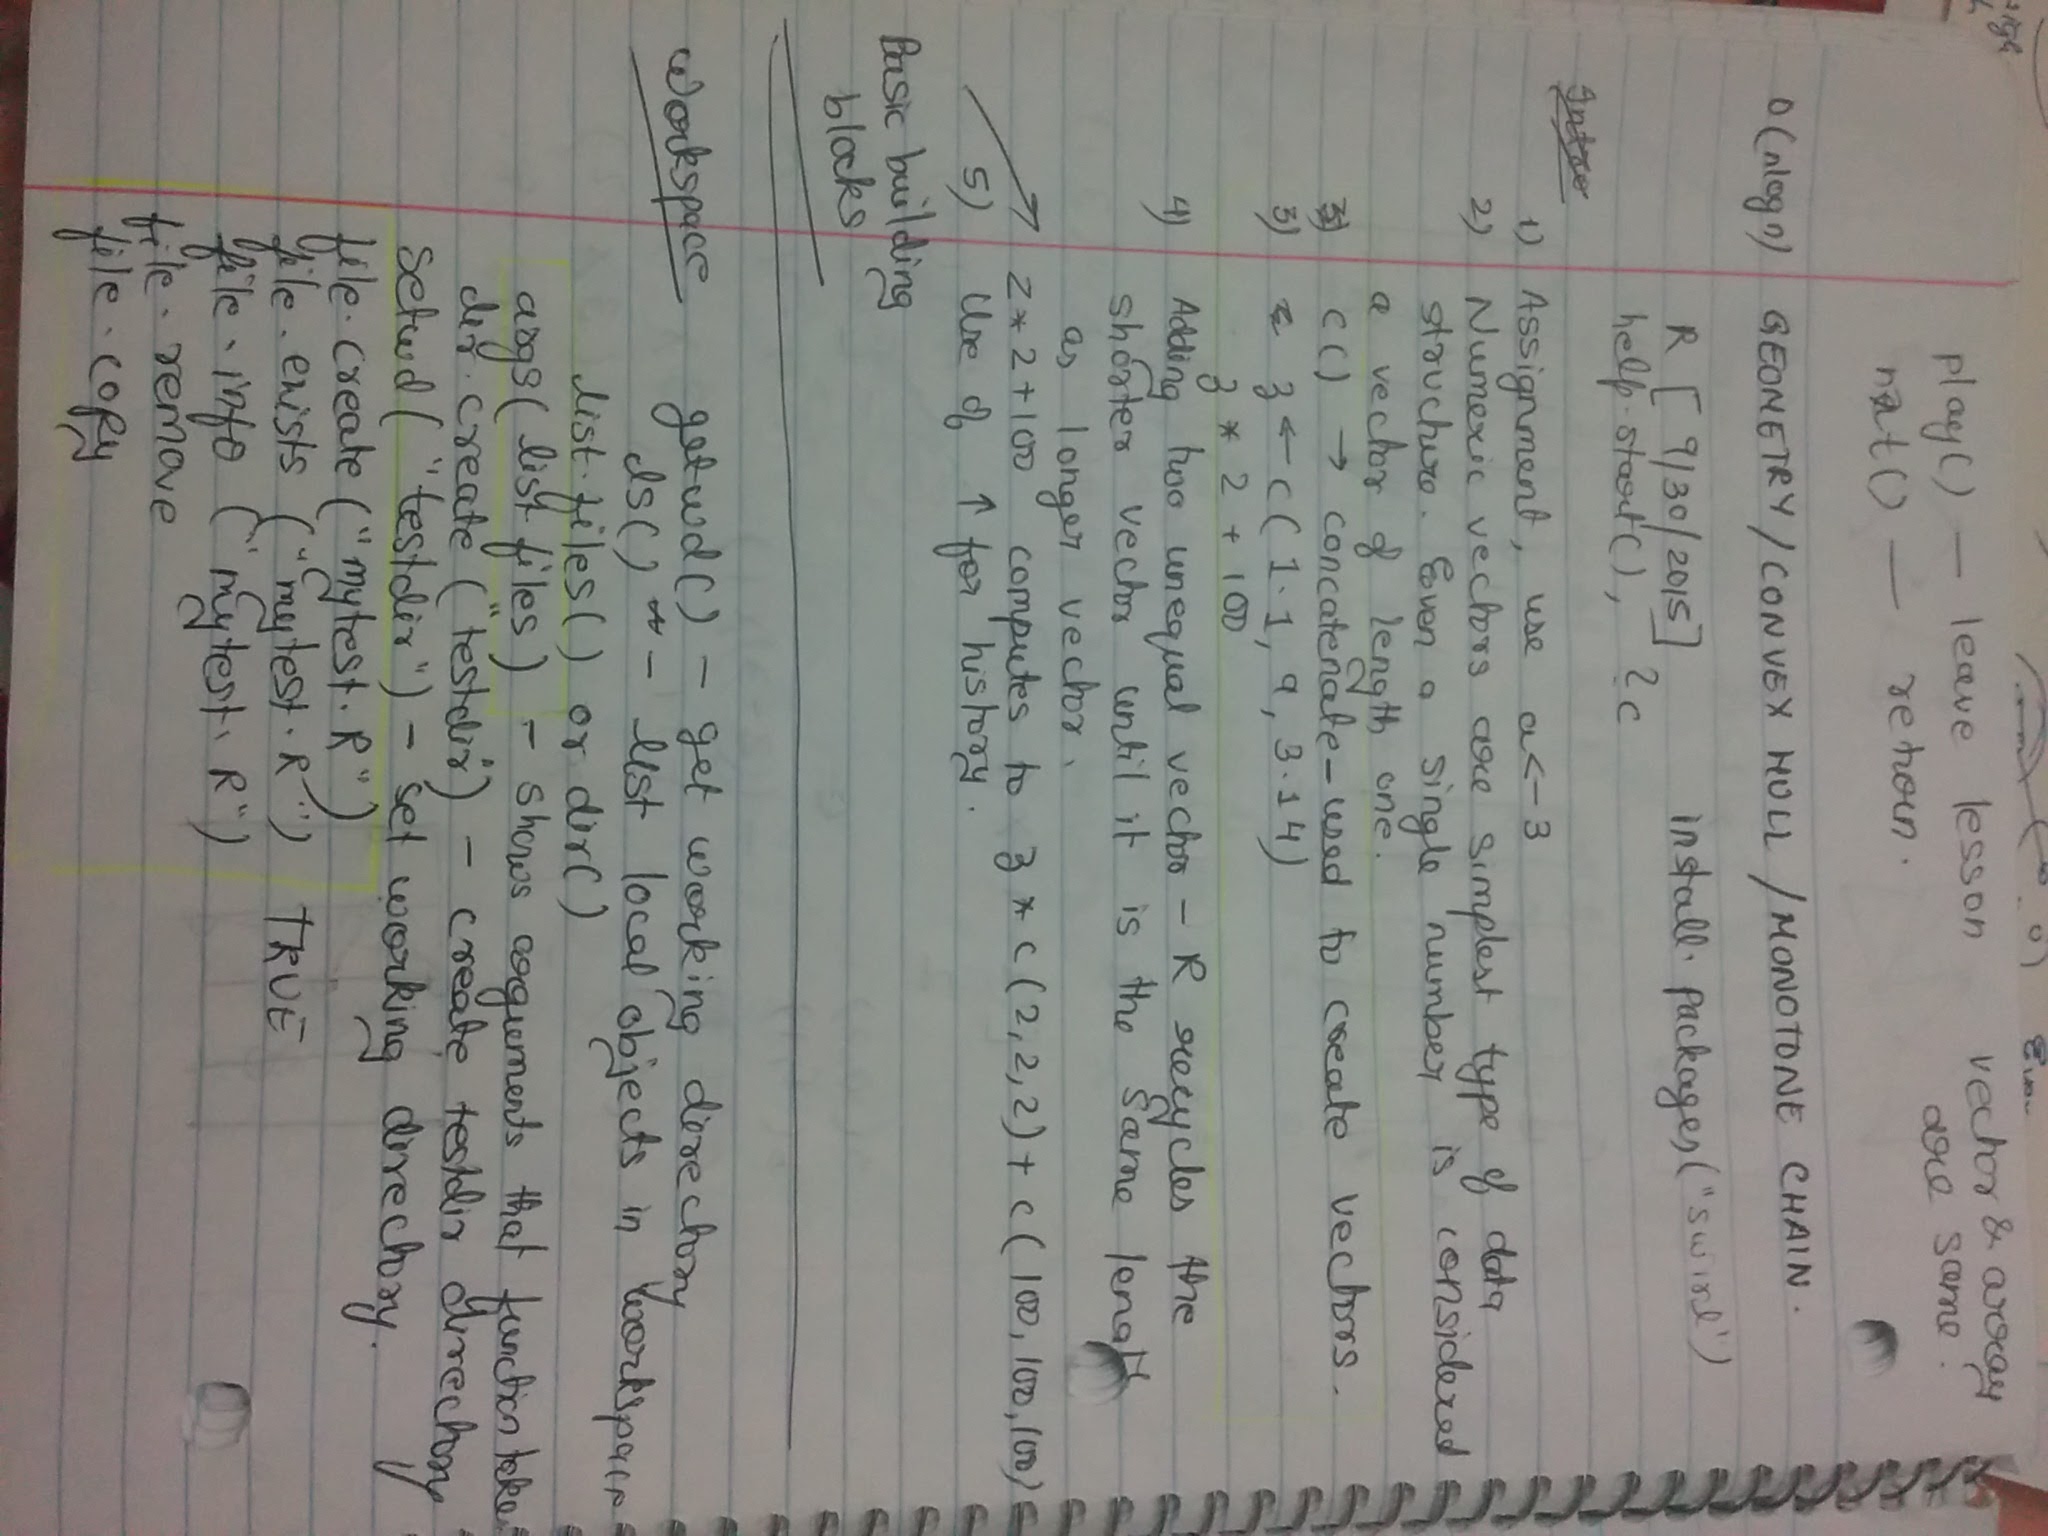 play() — leave lesson vector & array
nxt() — return. are same.
O(nlogn) GEOMETRY/CONVEX HULL/MONOTONE CHAIN.
R [9/30/2015] install.packages("swirl")
help.start(), ?c
Intro
1) Assignment, use a<-3
2) Numeric vectors are simplest type of data
structure. Even a single number is considered
a vector of length one.
c() → concatenate-used to create vectors.
3) z ← c(1.1, 9, 3.14)
z * 2 + 100
4) Adding two unequal vector - R recycles the
shorter vector until it is the same length
as longer vector.
z * 2 + 100 computes to z * c(2,2,2) + c(100,100,100)
5) Use of ↑ for history.
Basic building
blocks
Workspace getwd() - get working directory
ls() - list local objects in workspace
list.files() or dir()
args(list.files) - shows arguments that function take
dir.create("testdir") - create testdir directory
setwd("testdir") - set working directory.
file.create("mytest.R")
file.exists("mytest.R") TRUE
file.info("mytest.R")
file.remove
file.copy